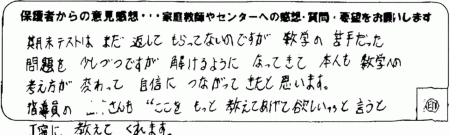 保護者からの意見感想・・・家庭教師やセンターへの感想・質問・要望をお願いします
期末テストは まだ 返して もらってないのですが 数学の 苦手だった
問題を 少しづつですが 解けるように なってきて 本人も 数学への
考え方が 変わって 自信に つながって きたと思います。
指導員の さんも “ここを もっと 教えてあげて欲しい„と言うと
丁寧に 教えて くれます。
印